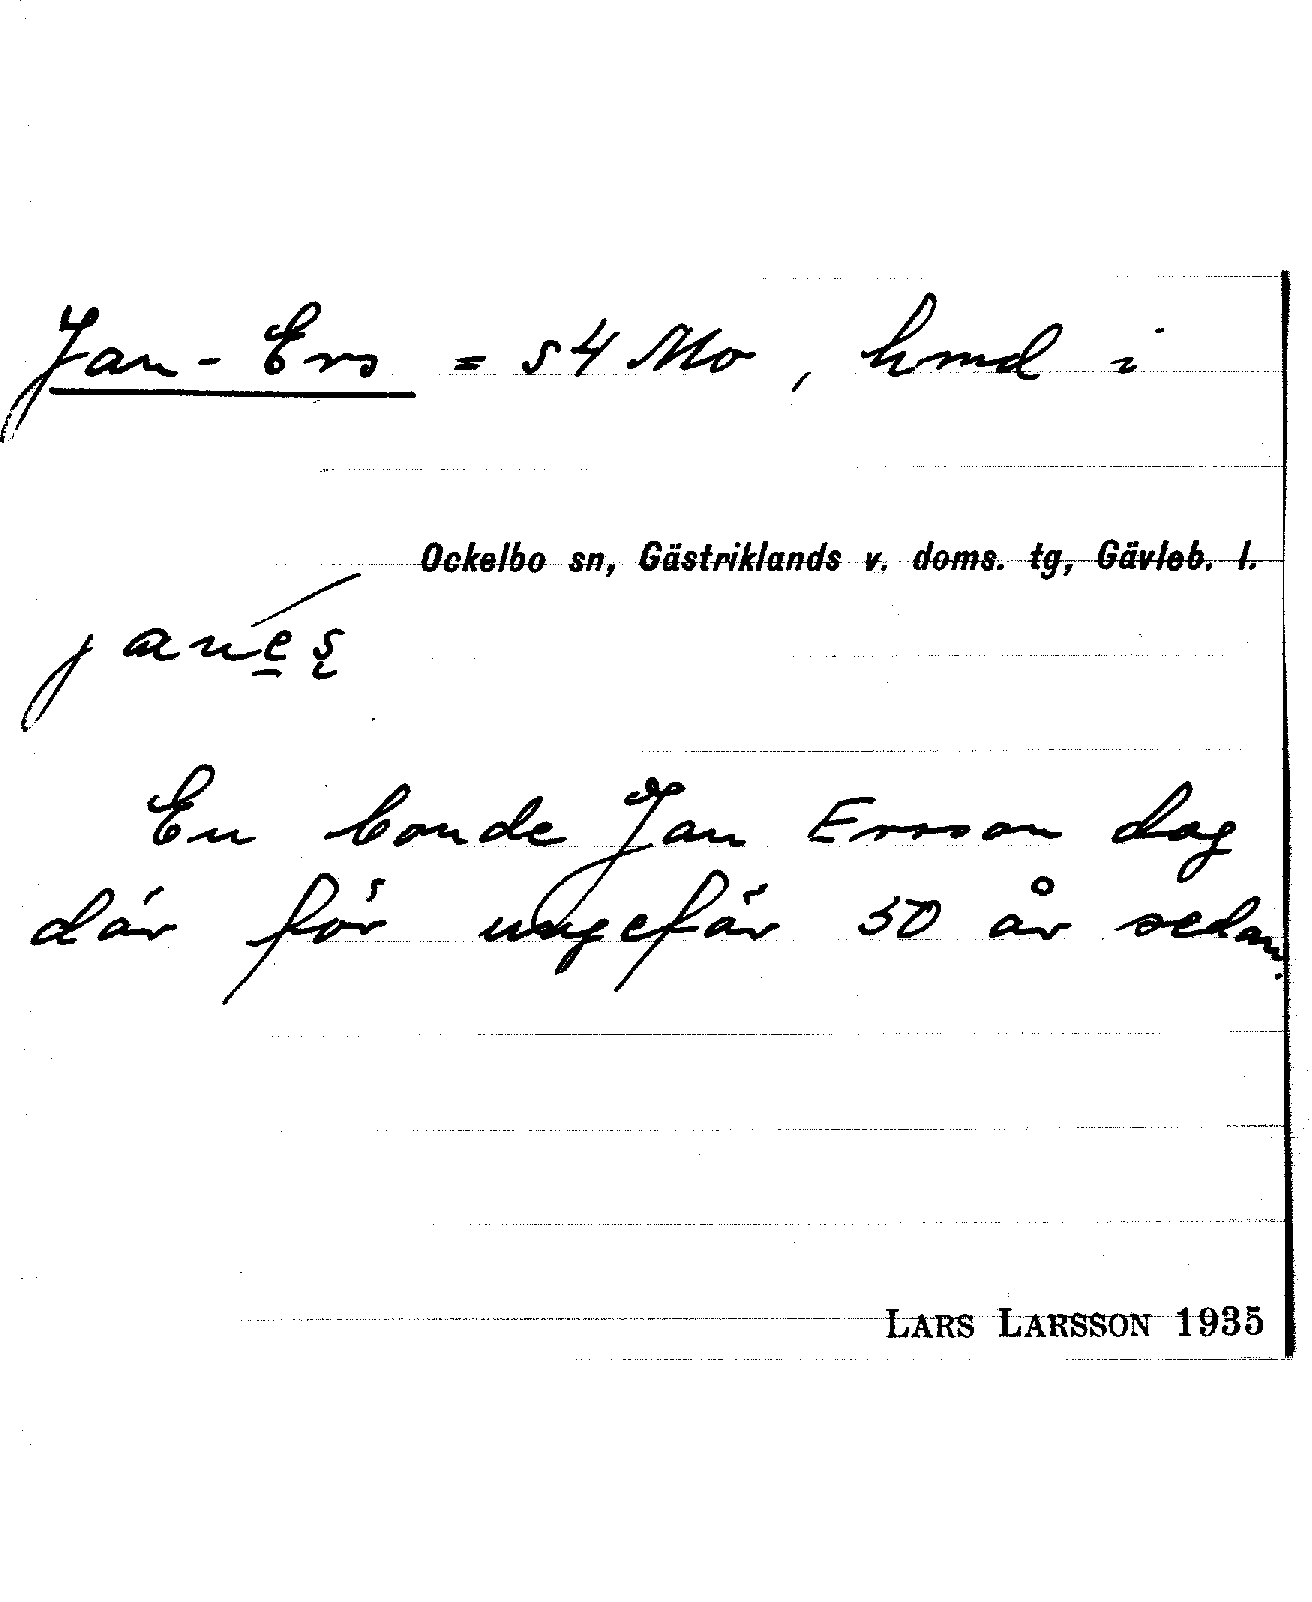 Jan-Ers = 54 Mo, hmd i
Ockelbo sn, Gästriklands v. doms. tg, Gävleb. l.
janes
En bonde Jan Ersson dog
där för ungefär 50 år sedan.
LARS LARSSON 1935